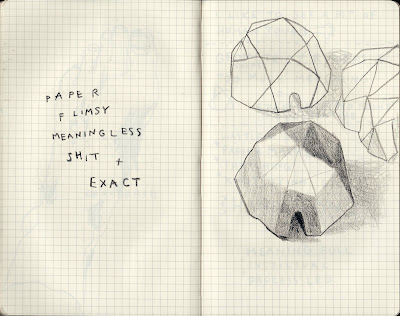 PAPER
FLIMSY
MEANINGLESS
SHIT +
EXACT